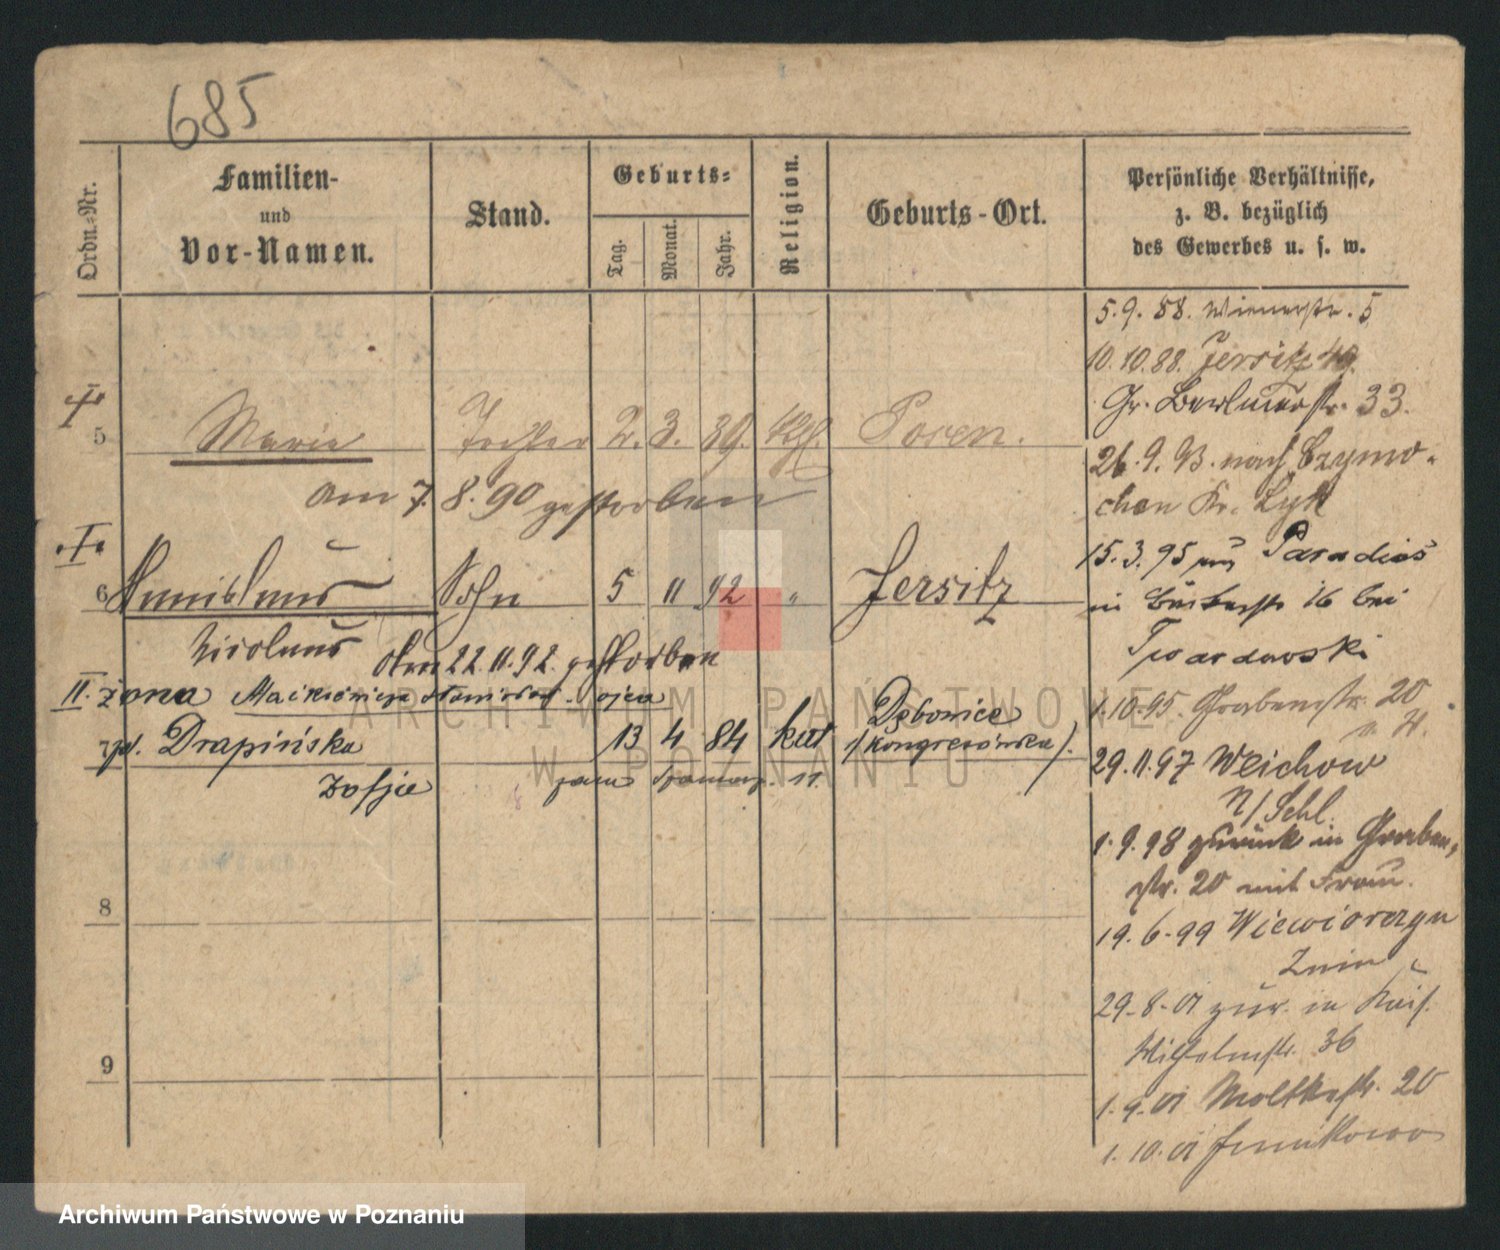 685
Ordn.-Nr.
Familien-
und
Vor-Namen.
Stand.
Geburts-
Tag.
Monat.
Jahr.
Religion.
Geburts-Ort.
Persönliche Verhältnisse,
z. B. bezüglich
des Gewerbes u. s. w.
5 Marie Tochter 2. 3. 89. kth. Posen.
am 7. 8. 90 gestorben
6 Stanislaus Sohn 5 11 92 " Jersitz
Nicolaus
Am 22.11.92. gestorben
II. żona Maikowicza Stanisław. ojca
7 Drapińska 13 4 84 kat Dębowice
(Kongresówka).
Zofja
8
9
5.9.88. Wienerstr. 5
10.10.88. Jersitz 49.
Gr. Berlinerstr. 33.
26.9.93. nach Czymo-
chen Kr. Lyk
15.3.95 aus Paradies
in 16 bei
Twardowski
1.10.95. Grabenstr. 20
29.11.97 Weichow
N/Schl.
1.9.98 zurück in Graben-
str. 20 mit Frau.
19.6.99 Wiewiorczyn
Znin
29.8.01 zur. in Kais.
Wilhelmstr. 36
1.9.01 Moltkestr. 20
1.10.01 Junikowo
ARCHIWUM PAŃSTWOWE
W POZNANIU
Archiwum Państwowe w Poznaniu